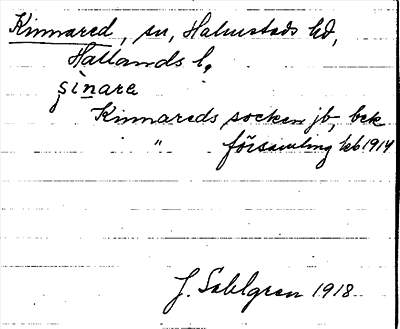 Kinnared, sn, Halmstads hd,
Hallands l.
şìnarɛ
Kinnareds socken jb, bek
" församling kb 1914
J. Sahlgren 1918